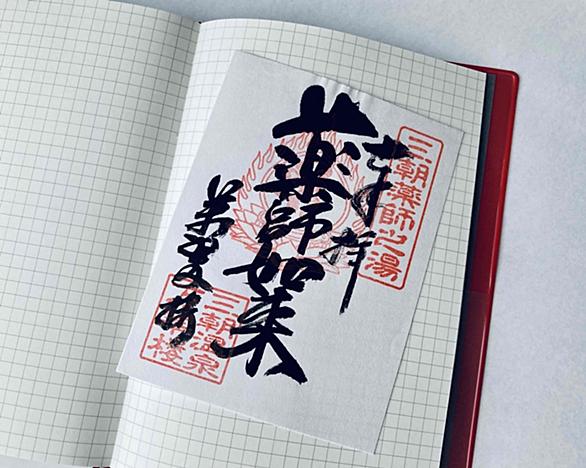 三朝薬師之湯
奉拝
薬師如来
萬翠楼
三朝温泉
萬翠楼